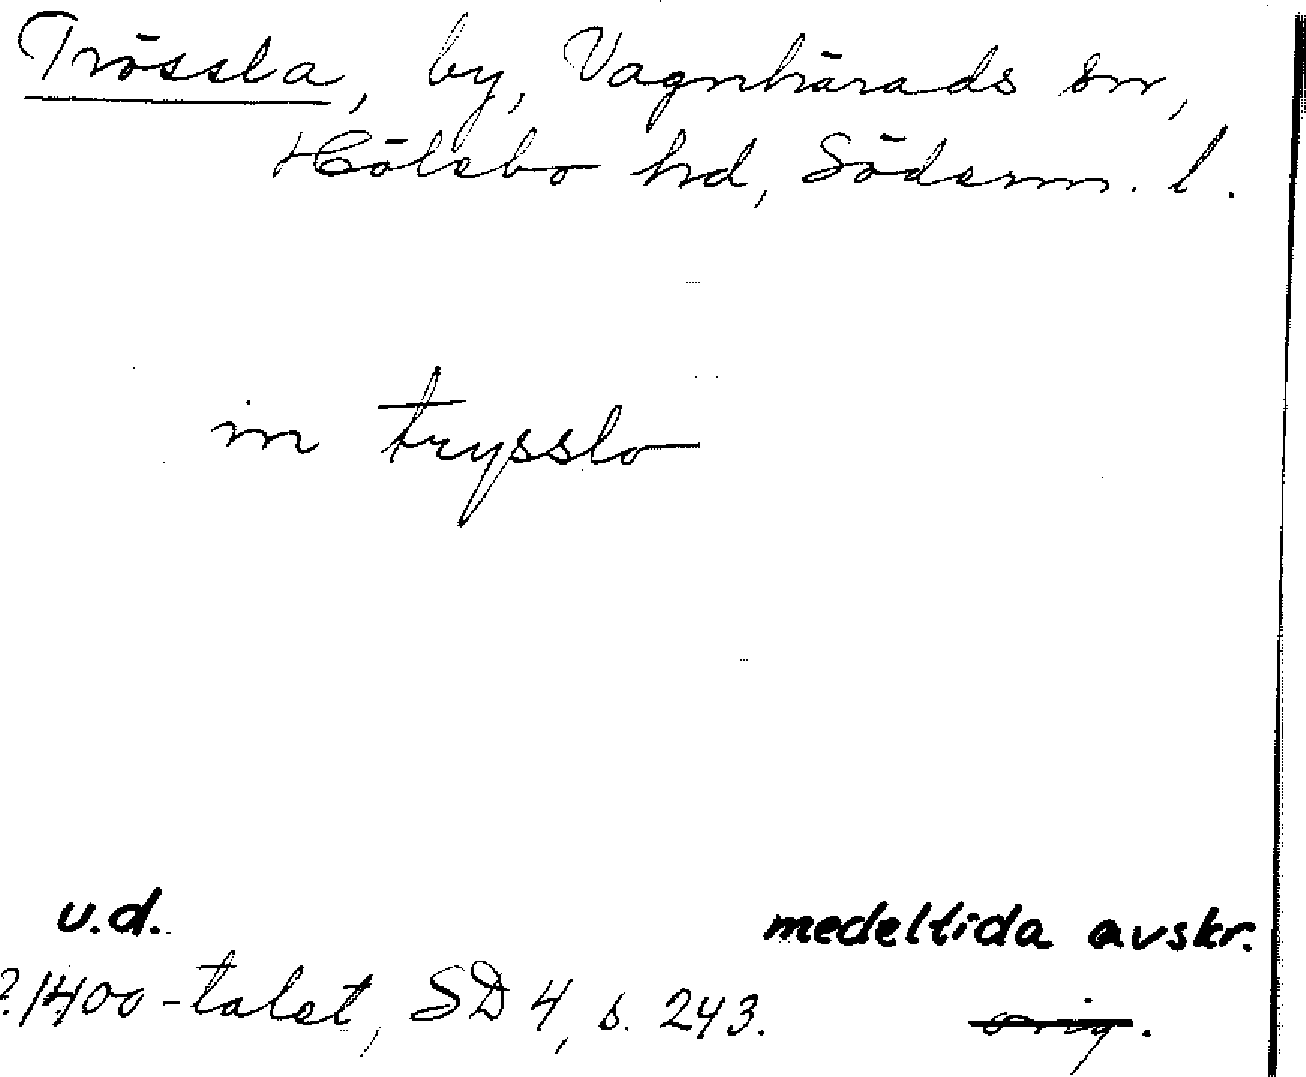 Trössla, by, Vagnhärads sn,
Hölebo hd, Söderm. l.
in trysslo
u.d.
medeltida avskr.
? 1400-talet, SD 4, s. 243.
orig.